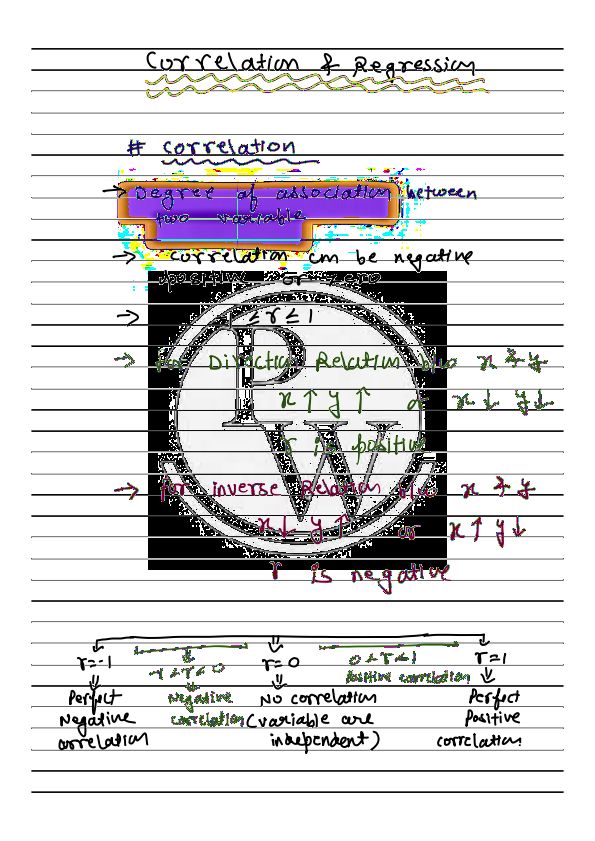 Correlation & Regression
# Correlation
→ Degree of association between
two variable
→ correlation can be negative
positive or zero
→ ≤ r ≤ 1
→ for Direction Relation b/w x & y
x ↑ y ↑ or x ↓ y ↓
r is positive
→ for inverse Relation b/w x & y
x ↓ y ↑ or x ↑ y ↓
r is negative
r=-1 -1<r<0 r=0 0<r<1 r=1
Positive correlation
Perfect Negative No correlation Perfect
Negative correlation (variable are Positive
correlation independent) correlation.
PW